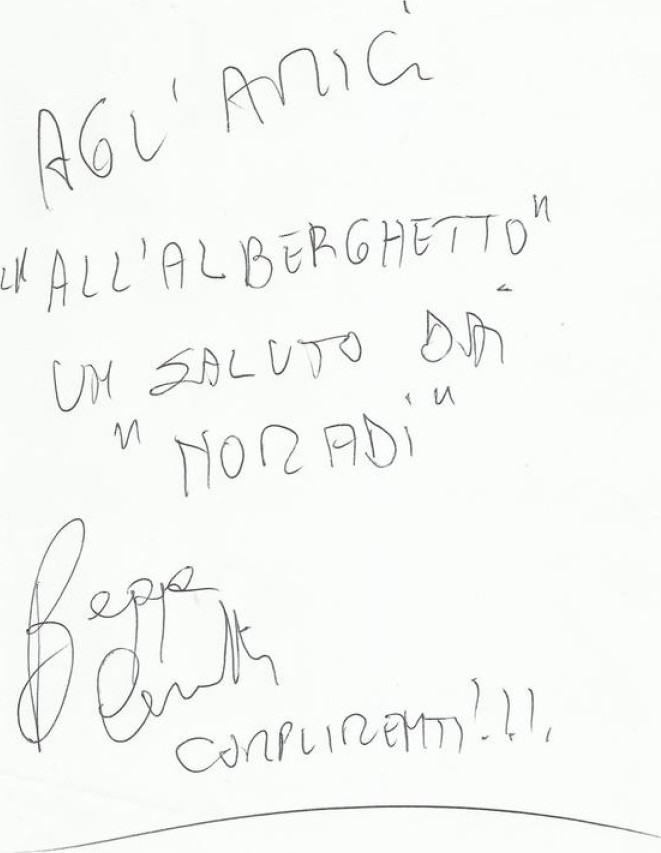 AGL' AMICI
"ALL'ALBERGHETTO"
UN SALUTO DAI
"NOMADI"
Beppe
COMPLIMENTI!!!